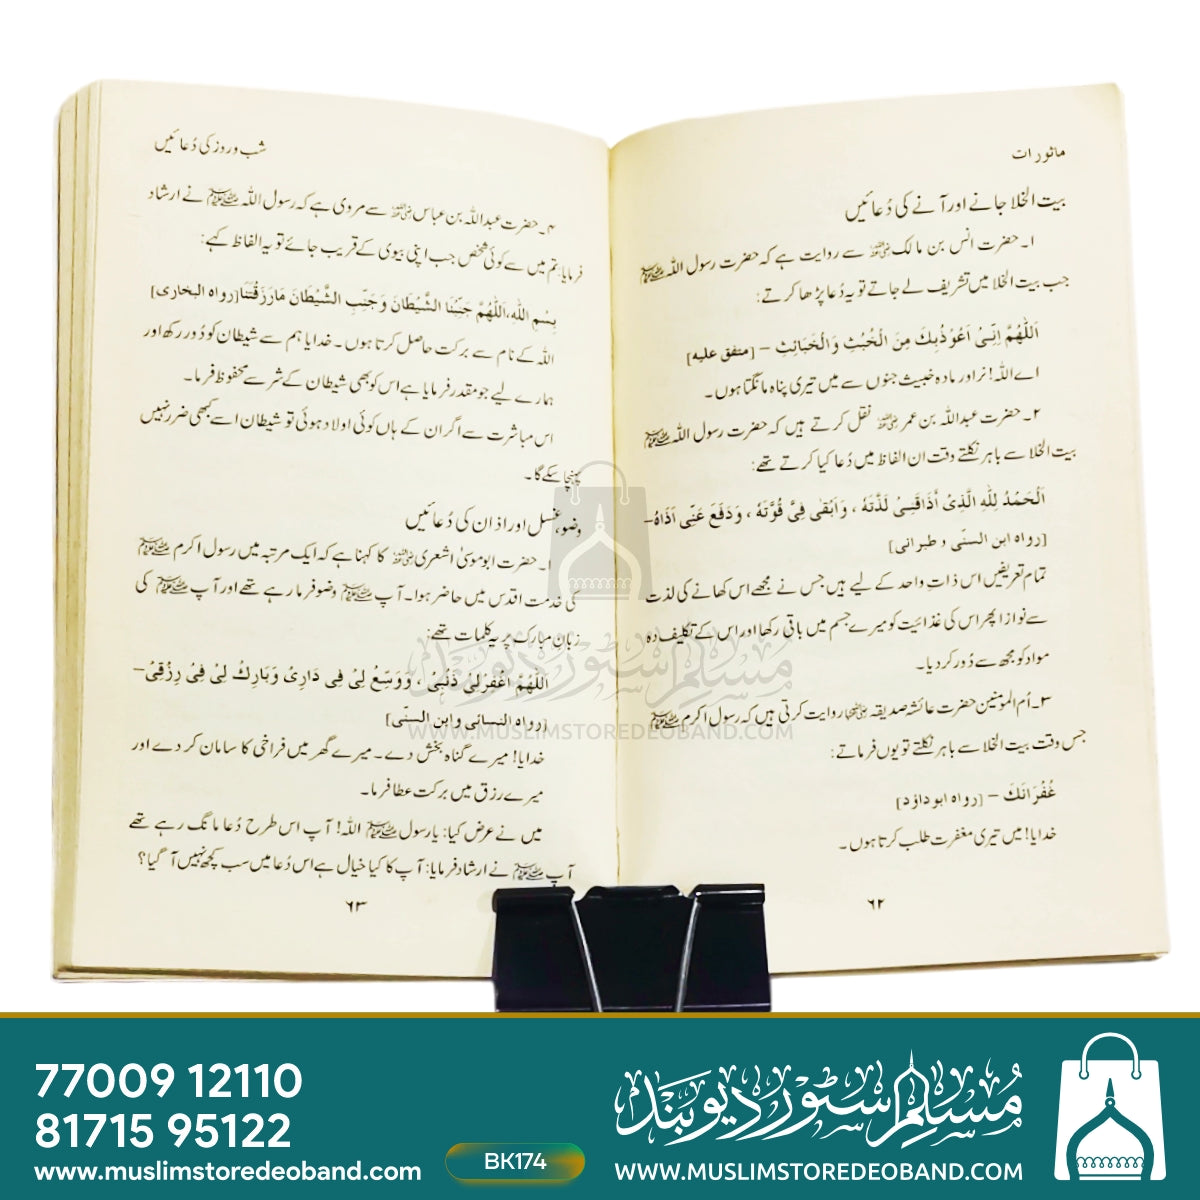 ماثورات
بیت الخلا جانے اور آنے کی دُعائیں
۱۔ حضرت انس بن مالک رضی اللہ عنہ سے روایت ہے کہ حضرت رسول اللہ ﷺ
جب بیت الخلا میں تشریف لے جاتے تو یہ دُعا پڑھا کرتے:
اَللّٰهُمَّ اِنِّىْ اَعُوْذُبِكَ مِنَ الْخُبُثِ وَالْخَبَائِثِ – [متفق علیه]
اے اللہ! نر اور مادہ خبیث جنوں سے میں تیری پناہ مانگتا ہوں۔
۲۔ حضرت عبداللہ بن عمر رضی اللہ عنہ نقل کرتے ہیں کہ حضرت رسول اللہ ﷺ
بیت الخلا سے باہر نکلتے وقت ان الفاظ میں دُعا کیا کرتے تھے:
اَلْحَمْدُ لِلّٰهِ الَّذِىْ اَذَاقَنِىْ لَذَّتَهٗ ، وَاَبْقٰى فِىَّ قُوَّتَهٗ ، وَدَفَعَ عَنِّى اَذَاهُ–
[رواه ابن السنّی و طبرانی]
تمام تعریفیں اس ذاتِ واحد کے لیے ہیں جس نے مجھے اس کھانے کی لذت
سے نوازا پھر اس کی غذائیت کو میرے جسم میں باقی رکھا اور اس کے تکلیف دہ
مواد کو مجھ سے دُور کر دیا۔
۳۔ اُم المومنین حضرت عائشہ صدیقہ رضی اللہ عنہا روایت کرتی ہیں کہ رسول اکرم ﷺ
جس وقت بیت الخلا سے باہر نکلتے تو یوں فرماتے:
غُفْرَانَكَ – [رواه ابوداؤد]
خدایا! میں تیری مغفرت طلب کرتا ہوں۔
۶۲
شب و روز کی دُعائیں
۴۔ حضرت عبداللہ بن عباس رضی اللہ عنہ سے مروی ہے کہ رسول اللہ ﷺ نے ارشاد
فرمایا: تم میں سے کوئی شخص جب اپنی بیوی کے قریب جائے تو یہ الفاظ کہے:
بِسْمِ اللّٰهِ، اَللّٰهُمَّ جَنِّبْنَا الشَّيْطَانَ وَجَنِّبِ الشَّيْطَانَ مَارَزَقْتَنَا [رواه البخاری]
اللہ کے نام سے برکت حاصل کرتا ہوں۔ خدایا ہم سے شیطان کو دُور رکھ اور
ہمارے لیے جو مقدر فرمایا ہے اس کو بھی شیطان کے شر سے محفوظ فرما۔
اس مباشرت سے اگر ان کے ہاں کوئی اولاد ہوئی تو شیطان اسے کبھی ضرر نہیں
پہنچا سکے گا۔
وضو، غسل اور اذان کی دُعائیں
۱۔ حضرت ابوموسیٰ اشعری رضی اللہ عنہ کا کہنا ہے کہ ایک مرتبہ میں رسول اکرم ﷺ
کی خدمت اقدس میں حاضر ہوا۔ آپ ﷺ وضو فرما رہے تھے اور آپ ﷺ کی
زبانِ مبارک پر یہ کلمات تھے:
اَللّٰهُمَّ اغْفِرْلِىْ ذَنْبِىْ ، وَوَسِّعْ لِىْ فِى دَارِىْ وَبَارِكْ لِىْ فِىْ رِزْقِىْ–
[رواه النسائی وابن السنّی]
خدایا! میرے گناہ بخش دے۔ میرے گھر میں فراخی کا سامان کر دے اور
میرے رزق میں برکت عطا فرما۔
میں نے عرض کیا: یا رسول ﷺ اللہ! آپ اس طرح دُعا مانگ رہے تھے
آپ ﷺ نے ارشاد فرمایا: آپ کا کیا خیال ہے اس دُعا میں سب کچھ نہیں آ گیا؟
۶۳
مسلم سٹور دیوبند
WWW.MUSLIMSTOREDEOBAND.COM
77009 12110
81715 95122
www.muslimstoredeoband.com
BK174
مسلم سٹور دیوبند
WWW.MUSLIMSTOREDEOBAND.COM